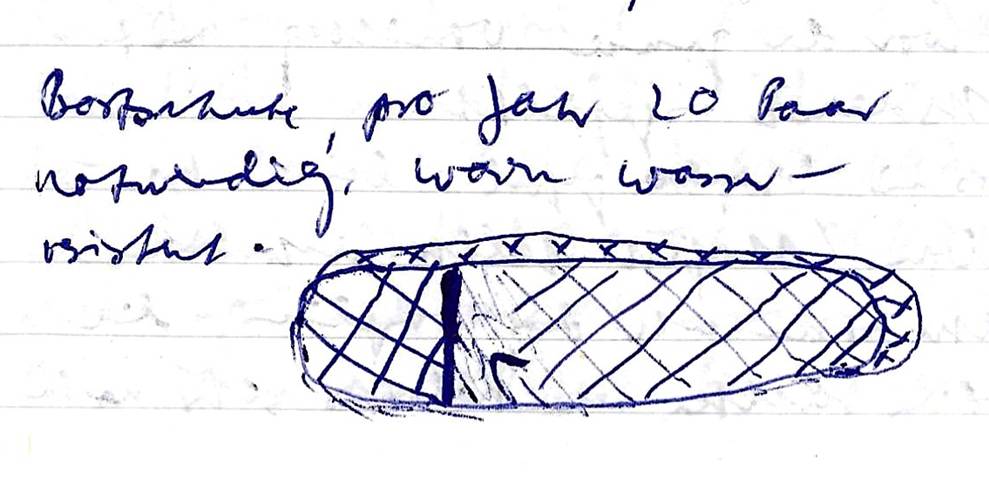 Bastschuhe, pro Jahr 20 Paar
notwendig, warn wasser-
resistent.